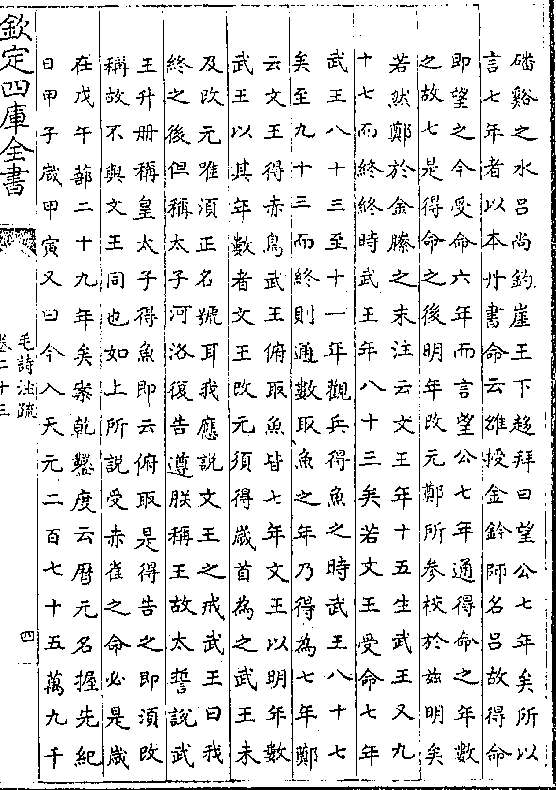 磻谿之水吕尚釣崖王下趍拜曰望公七年矣所以
言七年者以本丹書命云雒授金鈐師名吕故得命
即望之今受命六年而言望公七年通得命之年數
之故七是得命之後明年改元鄭所參校於兹明矣
若然鄭於金縢之末注云文王年十五生武王又九
十七而終終時武王年八十三矣若文王受命七年
武王八十三至十一年觀兵得魚之時武王八十七
矣至九十三而終則通數取魚之年乃得為七年鄭
云文王得赤鳥武王俯取魚皆七年文王以明年數
武王以其年數者文王改元須得歲首為之武王未
及改元唯須正名號耳我應説文王之戒武王曰我
終之後但稱太子河洛復告遵朕稱王故太誓説武
王升册稱皇太子得魚即云俯取是得告之即須改
稱故不與文王同也如上所説受赤雀之命必是歲
在戊午蔀二十九年矣案乾鑿度云厯元名握先紀
日甲子歲甲寅又曰今入天元二百七十五萬九千
欽定四庫全書
毛詩注疏
卷二十三
四